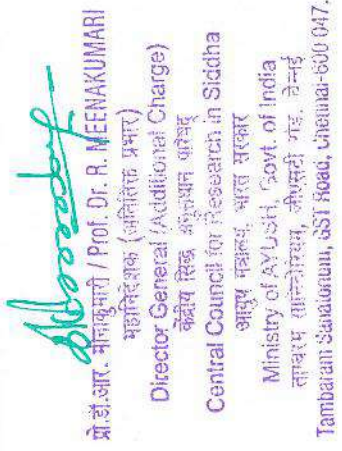 प्रो.डॉ.आर. मीनाकुमारी / Prof. Dr. R. MEENAKUMARI
महानिदेशक (अतिरिक्त प्रभार)
Director General (Additional Charge)
केंद्रीय सिद्ध अनुसंधान परिषद
Central Council for Research in Siddha
आयुष मंत्रालय, भारत सरकार
Ministry of AYUSH, Govt. of India
ताम्बरम सानिटोरियम, जीएसटी रोड, चेन्नई
Tambaram Sanatorium, GST Road, Chennai-600 047.